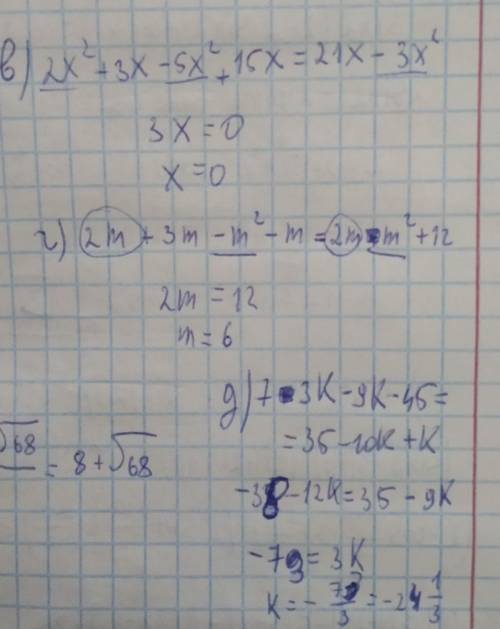 в) 2x² + 3x - 5x² + 15x = 21x - 3x²
3x = 0
x = 0
г) 2m + 3m - m² - m = 2m - m² + 12
2m = 12
m = 6
√68 = 8 + √68
д) 7 - 3k - 9k - 45 =
= 35 - 10k + k
-38 - 12k = 35 - 9k
-73 = 3k
k = - 73/3 = -24 1/3